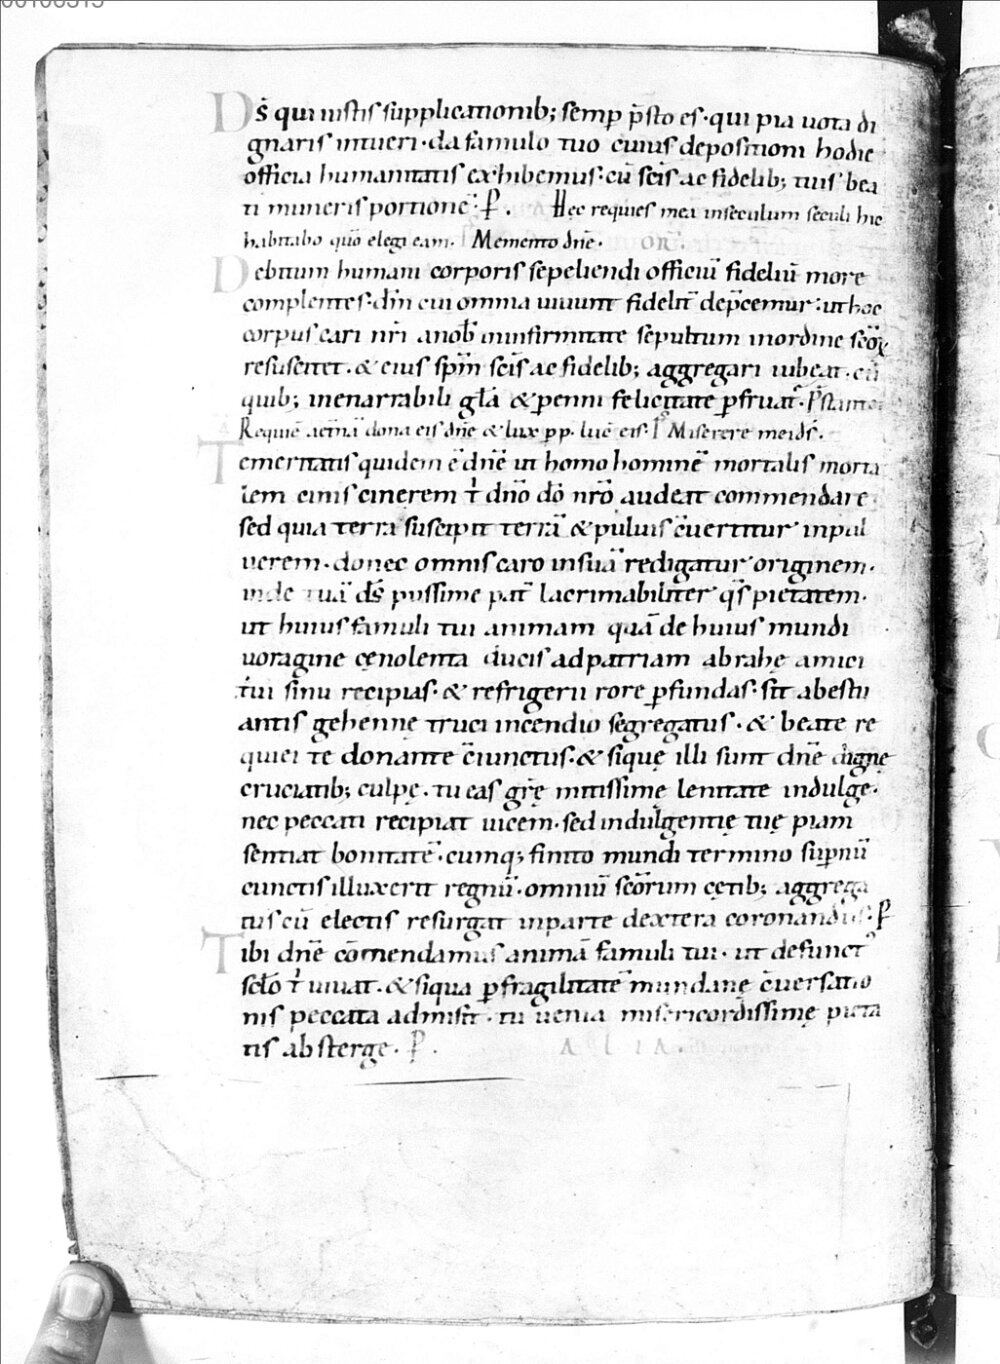 Ds̄ qui iustis supplicationib; semp p̄sto es· qui pia uota di
gnaris intueri· da famulo tuo cuius depositioni hodie
officia humanitatis exhibemus· cū sc̄is ac fidelib; tuis bea
ti muneris portionē· P̄. Hęc requies mea inseculum seculi hic
habitabo quō elegi eam. Memento dn̄e· OR̄.
Debitum humani corporis sepeliendi officiū fideliū more
complentes· dm̄ cui omnia uiuunt fidelit̄ dep̄cemur· ut hoc
corpus cari nr̄i anob̄ ininfirmitate sepultum inordine sc̄oꝝ
resuscitet· & eius sp̄m sc̄is ac fidelib; aggregari iubeat· cū
quib; inenarrabili gl̄a & ꝑenni felicitate ꝑfruat̄·
Requiē aet̄nā dona eis dn̄e & lux ꝑp. luc̄ eis· Ps̄ Miserere mei ds̄.
Temeritatis quidem ē dn̄e ut homo hominē mortalis morta
lem cinis cinerem t̄ dn̄o dō nr̄o audeat commendare·
sed quia terra suscipit terrā & puluis c̄uertitur inpul
uerem· donec omnis caro insuā redigatur originem·
inde tuā ds̄ piissime pat̄ lacrimabiliter qs̄ pietatem·
ut huius famuli tui animam quā de huius mundi
uoragine cęnolenta ducis adpatriam abrahę amici
tui sinu recipias· & refrigerii rore ꝑfundas· sit abestu
antis gehennę truci incendio segregatus· & beate re
quiei te donante c̄iunctus· & siquę illi sunt dn̄e dignę
cruciatib; culpę· tu eas gr̄ę mitissimę lenitate indulge·
nec peccati recipiat uicem· sed indulgentię tuę piam
sentiat bonitatē· cumq; finito mundi termino supnū
cunctis illuxerit regnū· omniū sc̄orum cętib; aggrega
tus cū electis resurgat inparte dextera coronandus· P̄
Tibi dn̄e cōmendamus animā famuli tui· ut defunct᾽
sc̄lo t̄ uiuat· & siqua ꝑ fragilitatē mundanę c̄uersatio
nis peccata admisit· tu uenia misericordissimę pieta
tis absterge· P̄. ALIA.